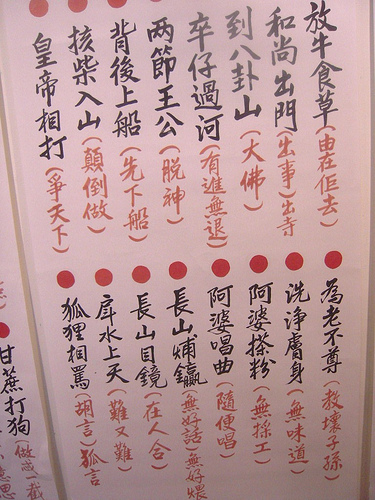 放牛食草(由在佢去)
和尚出門(出事)出寺
到八卦山(大佛)
卒仔過河(有進無退)
兩節王公(脫神)
背後上船(先下船)
核柴入山(顛倒做)
皇帝相打(爭天下)
為老不尊(教壞子孫)
洗淨膚身(無味道)
阿婆搽粉(無採工)
阿婆唱曲(隨便唱)
長山煀鑼(無好話)無好煨
長山目鏡(在人合)
戽水上天(難又難)
狐狸相罵(胡言)狐言
甘蔗打狗(做一截